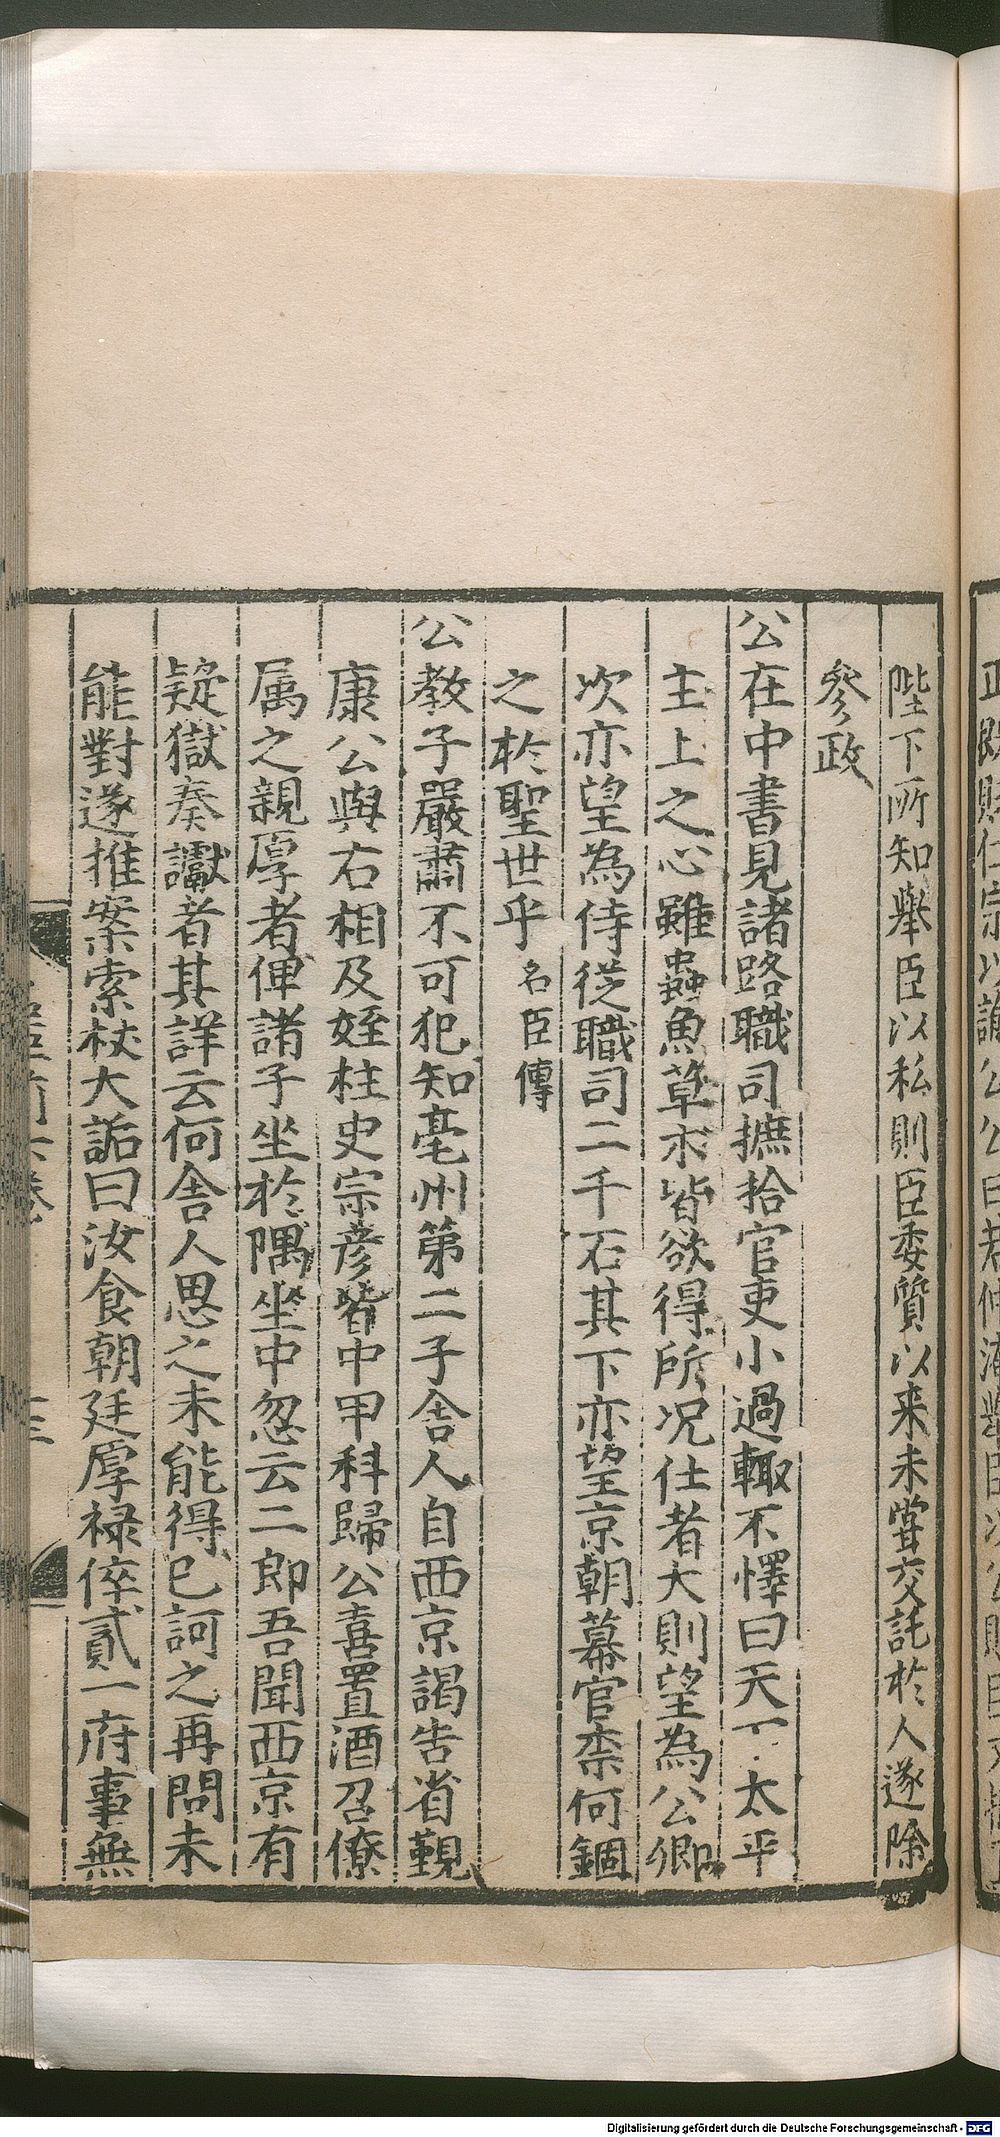 陛下所知舉臣以私則臣委質以来未嘗交託於人遂除
參政
公在中書見諸路職司摭拾官吏小過輙不懌曰天下太平
主上之心雖蟲魚草木皆欲得所况仕者大則望為公卿
次亦望為侍從職司二千石其下亦望京朝幕官柰何錮
之於聖世乎名臣傳
公教子嚴肅不可犯知亳州第二子舎人自西京謁告省覲
康公與右相及姪柱史宗彦皆中甲科歸公喜置酒召僚
属之親厚者俾諸子坐於隅坐中忽云二郎吾聞西京有
疑獄奏讞者其詳云何舎人思之未能得已訶之再問未
能對遂推案索杖大詬曰汝食朝廷厚禄倅貳一府事無
Digitalisierung gefördert durch die Deutsche Forschungsgemeinschaft - DFG